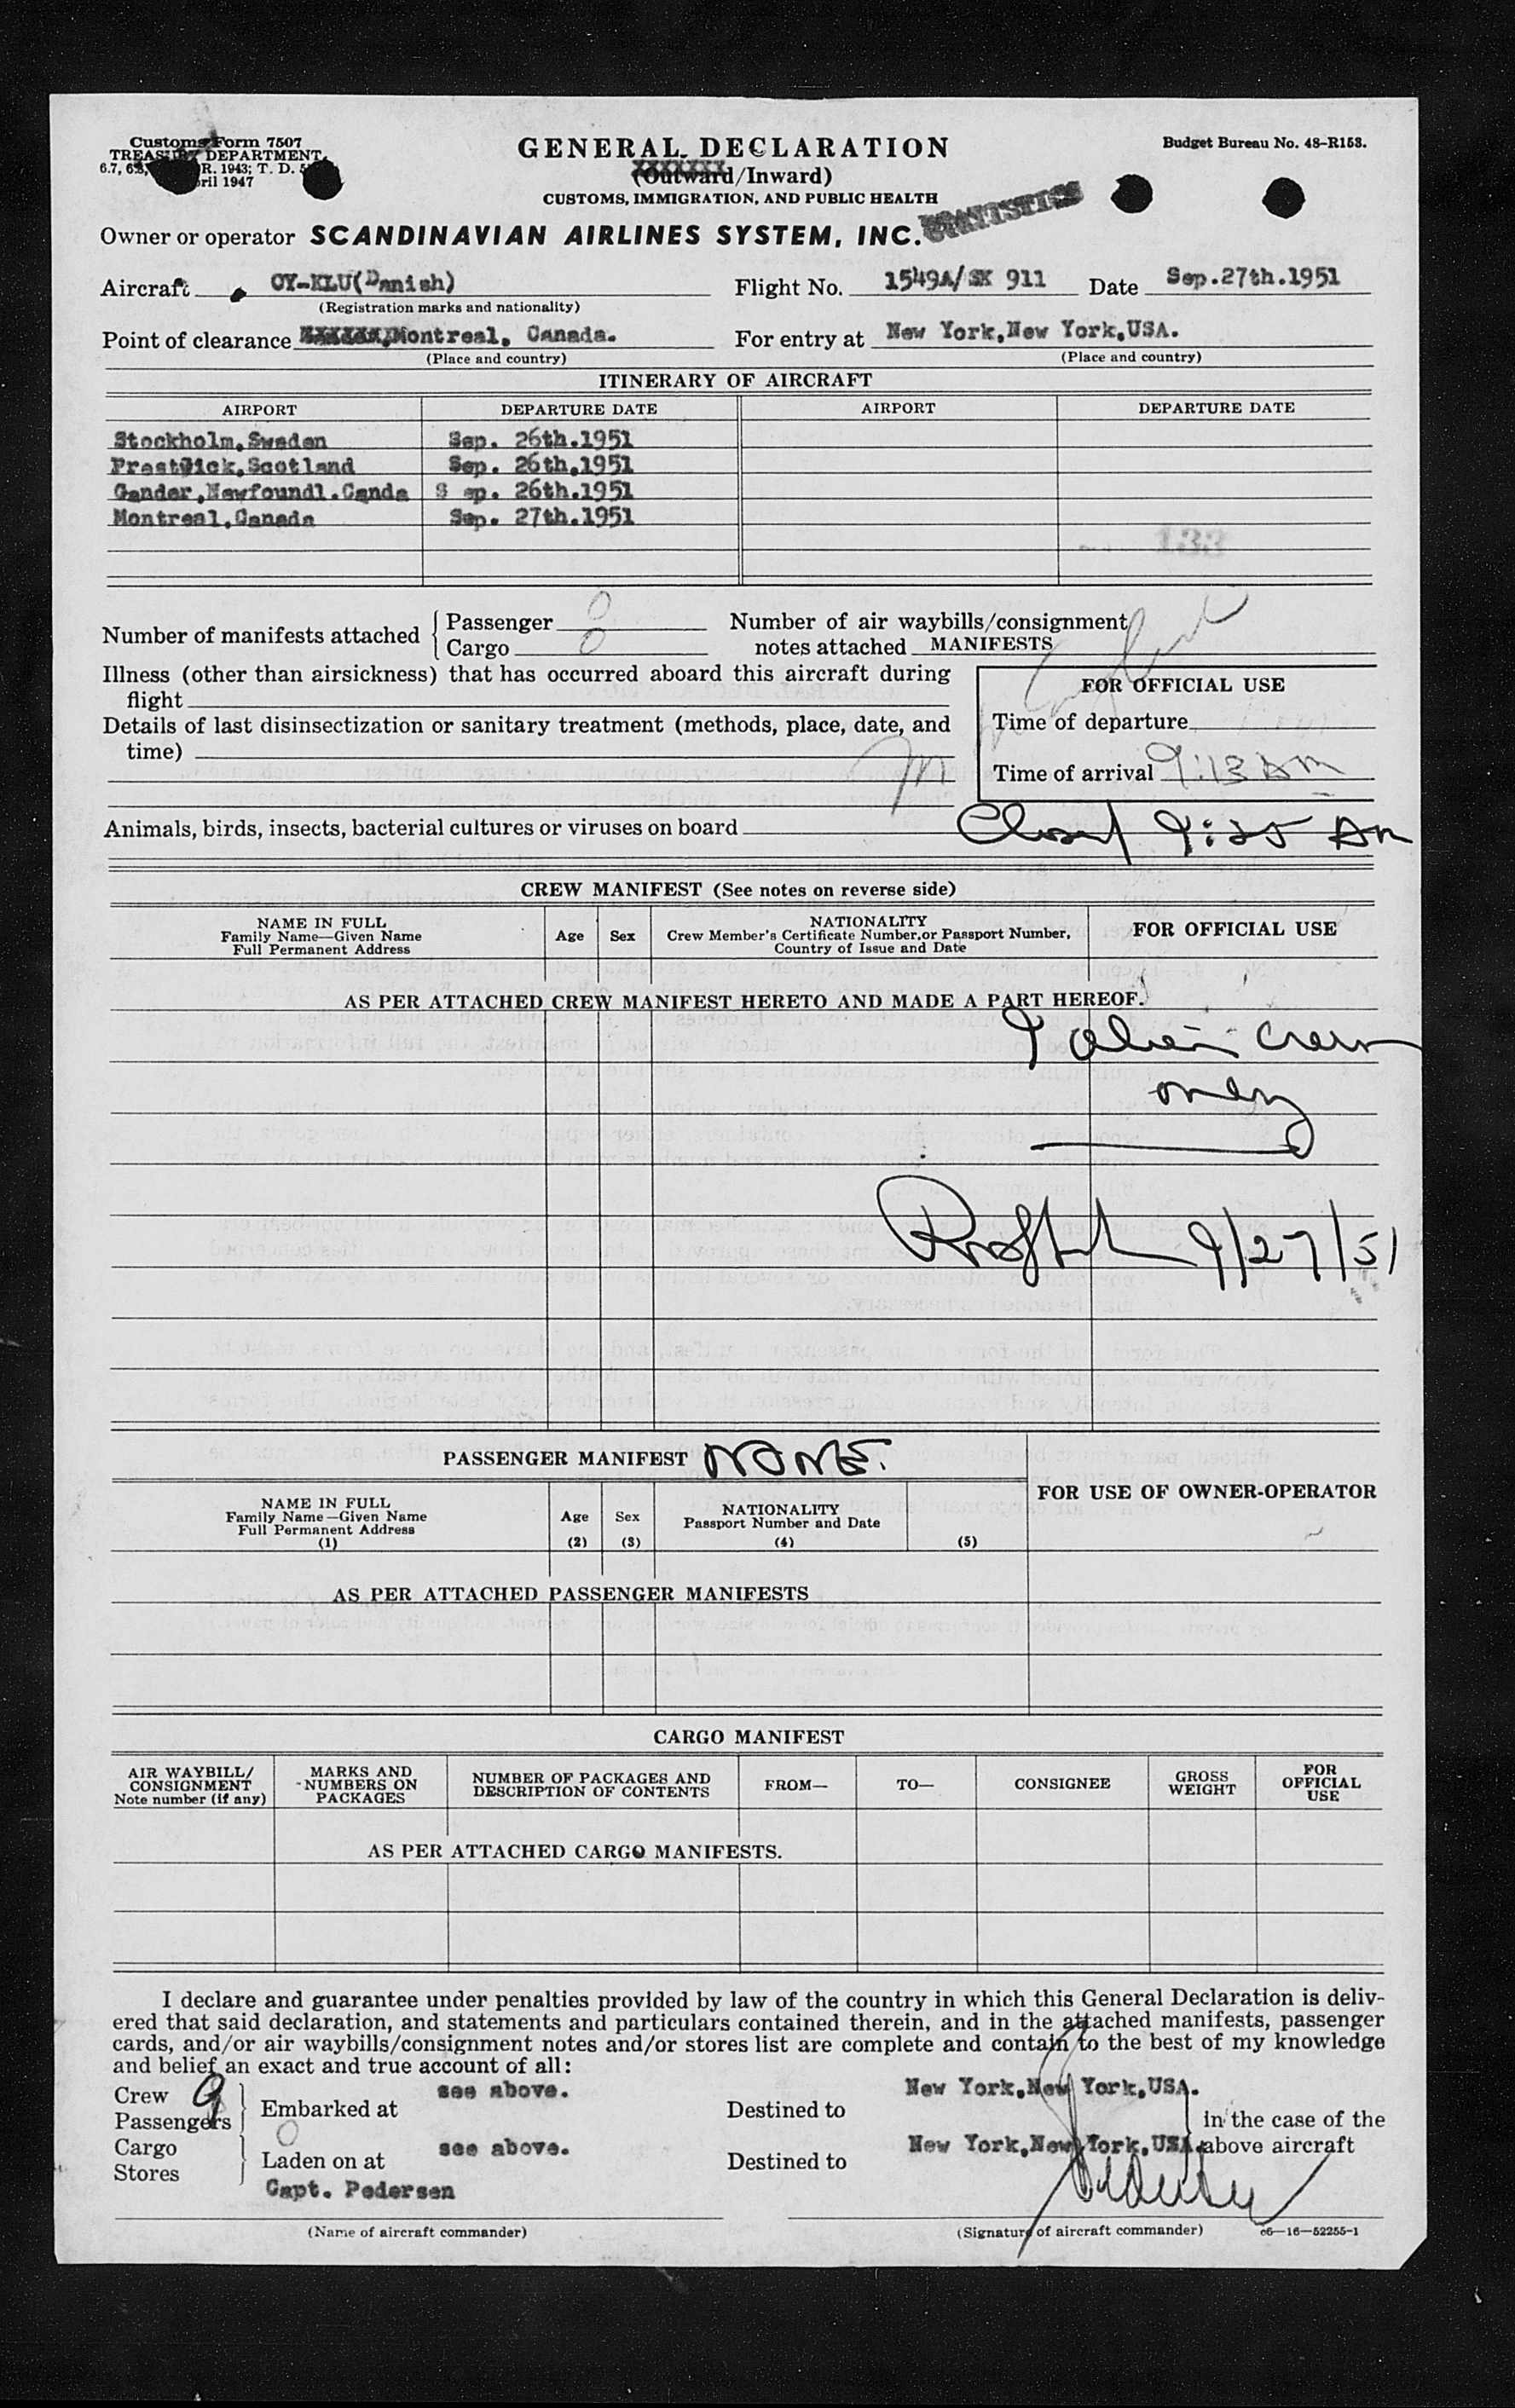 Customs Form 7507
TREASURY DEPARTMENT
6.7, 6.8, R. 1943; T. D.
April 1947
GENERAL DECLARATION
(Outward/Inward)
CUSTOMS, IMMIGRATION, AND PUBLIC HEALTH
Budget Bureau No. 48-R153.
Owner or operator SCANDINAVIAN AIRLINES SYSTEM, INC.
Aircraft OY-KLU(Danish) Flight No. 1549A/SK 911 Date Sep.27th.1951
(Registration marks and nationality)
Point of clearance Montreal, Canada. For entry at New York,New York,USA.
(Place and country) (Place and country)
ITINERARY OF AIRCRAFT
AIRPORT DEPARTURE DATE AIRPORT DEPARTURE DATE
Stockholm,Sweden Sep. 26th.1951
Prestwick,Scotland Sep. 26th,1951
Gander,Newfoundl.Canda S ep. 26th.1951
Montreal,Canada Sep. 27th.1951
133
Number of manifests attached { Passenger 0 Number of air waybills/consignment
Cargo 0 notes attached MANIFESTS
Illness (other than airsickness) that has occurred aboard this aircraft during
flight
FOR OFFICIAL USE
Details of last disinsectization or sanitary treatment (methods, place, date, and
time)
Time of departure
Time of arrival 9:13 AM
Animals, birds, insects, bacterial cultures or viruses on board
Closed 9:25 Am
CREW MANIFEST (See notes on reverse side)
NAME IN FULL
Family Name—Given Name
Full Permanent Address
Age Sex
NATIONALITY
Crew Member's Certificate Number,or Passport Number,
Country of Issue and Date
FOR OFFICIAL USE
AS PER ATTACHED CREW MANIFEST HERETO AND MADE A PART HEREOF.
9 alien crew
only
9/27/51
PASSENGER MANIFEST NONE.
FOR USE OF OWNER-OPERATOR
NAME IN FULL
Family Name—Given Name
Full Permanent Address
(1)
Age
(2)
Sex
(3)
NATIONALITY
Passport Number and Date
(4)
(5)
AS PER ATTACHED PASSENGER MANIFESTS
CARGO MANIFEST
AIR WAYBILL/
CONSIGNMENT
Note number (if any)
MARKS AND
NUMBERS ON
PACKAGES
NUMBER OF PACKAGES AND
DESCRIPTION OF CONTENTS
FROM—
TO—
CONSIGNEE
GROSS
WEIGHT
FOR
OFFICIAL
USE
AS PER ATTACHED CARGO MANIFESTS.
I declare and guarantee under penalties provided by law of the country in which this General Declaration is deliv-
ered that said declaration, and statements and particulars contained therein, and in the attached manifests, passenger
cards, and/or air waybills/consignment notes and/or stores list are complete and contain to the best of my knowledge
and belief an exact and true account of all:
Crew 9
Passengers 0 } Embarked at see above. Destined to New York,New York,USA.
in the case of the
Cargo
Stores } Laden on at see above. Destined to New York,New York,USA. above aircraft
Capt. Pedersen
(Name of aircraft commander) (Signature of aircraft commander) c6—16—52255-1